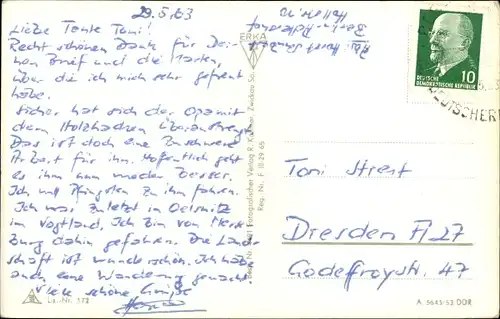 29.5.63
Liebe Tante Toni!
Recht schönen Dank für Dei-
nen Brief und die Karten,
über die ich mich sehr gefreut
habe.
Sicher hat sich der Opa mit
dem Holzhacken überanstrengt
Das ist doch eine zu schwere
Arbeit für ihn. Hoffentlich geht
es ihm nun wieder besser.
Ich will Pfingsten zu ihm fahren.
Ich war zuletzt in Oelsnitz
im Vogtland. Ich bin von
burg dahin gefahren. Die Land-
schaft ist wunderschön. Ich habe
auch eine Wanderung gemacht
Viele schöne Grüße
Lau-Nr. 172
ERKA
Fotografischer Verlag R. Zwickau Sa.
Reg.-Nr. F III-29-65
Abs.: Horst
Berlin-
10
DEUTSCHE
DEMOKRATISCHE REPUBLIK
Toni Strest
Dresden A 27
Godeffroystr. 47
A 5643/63 DDR